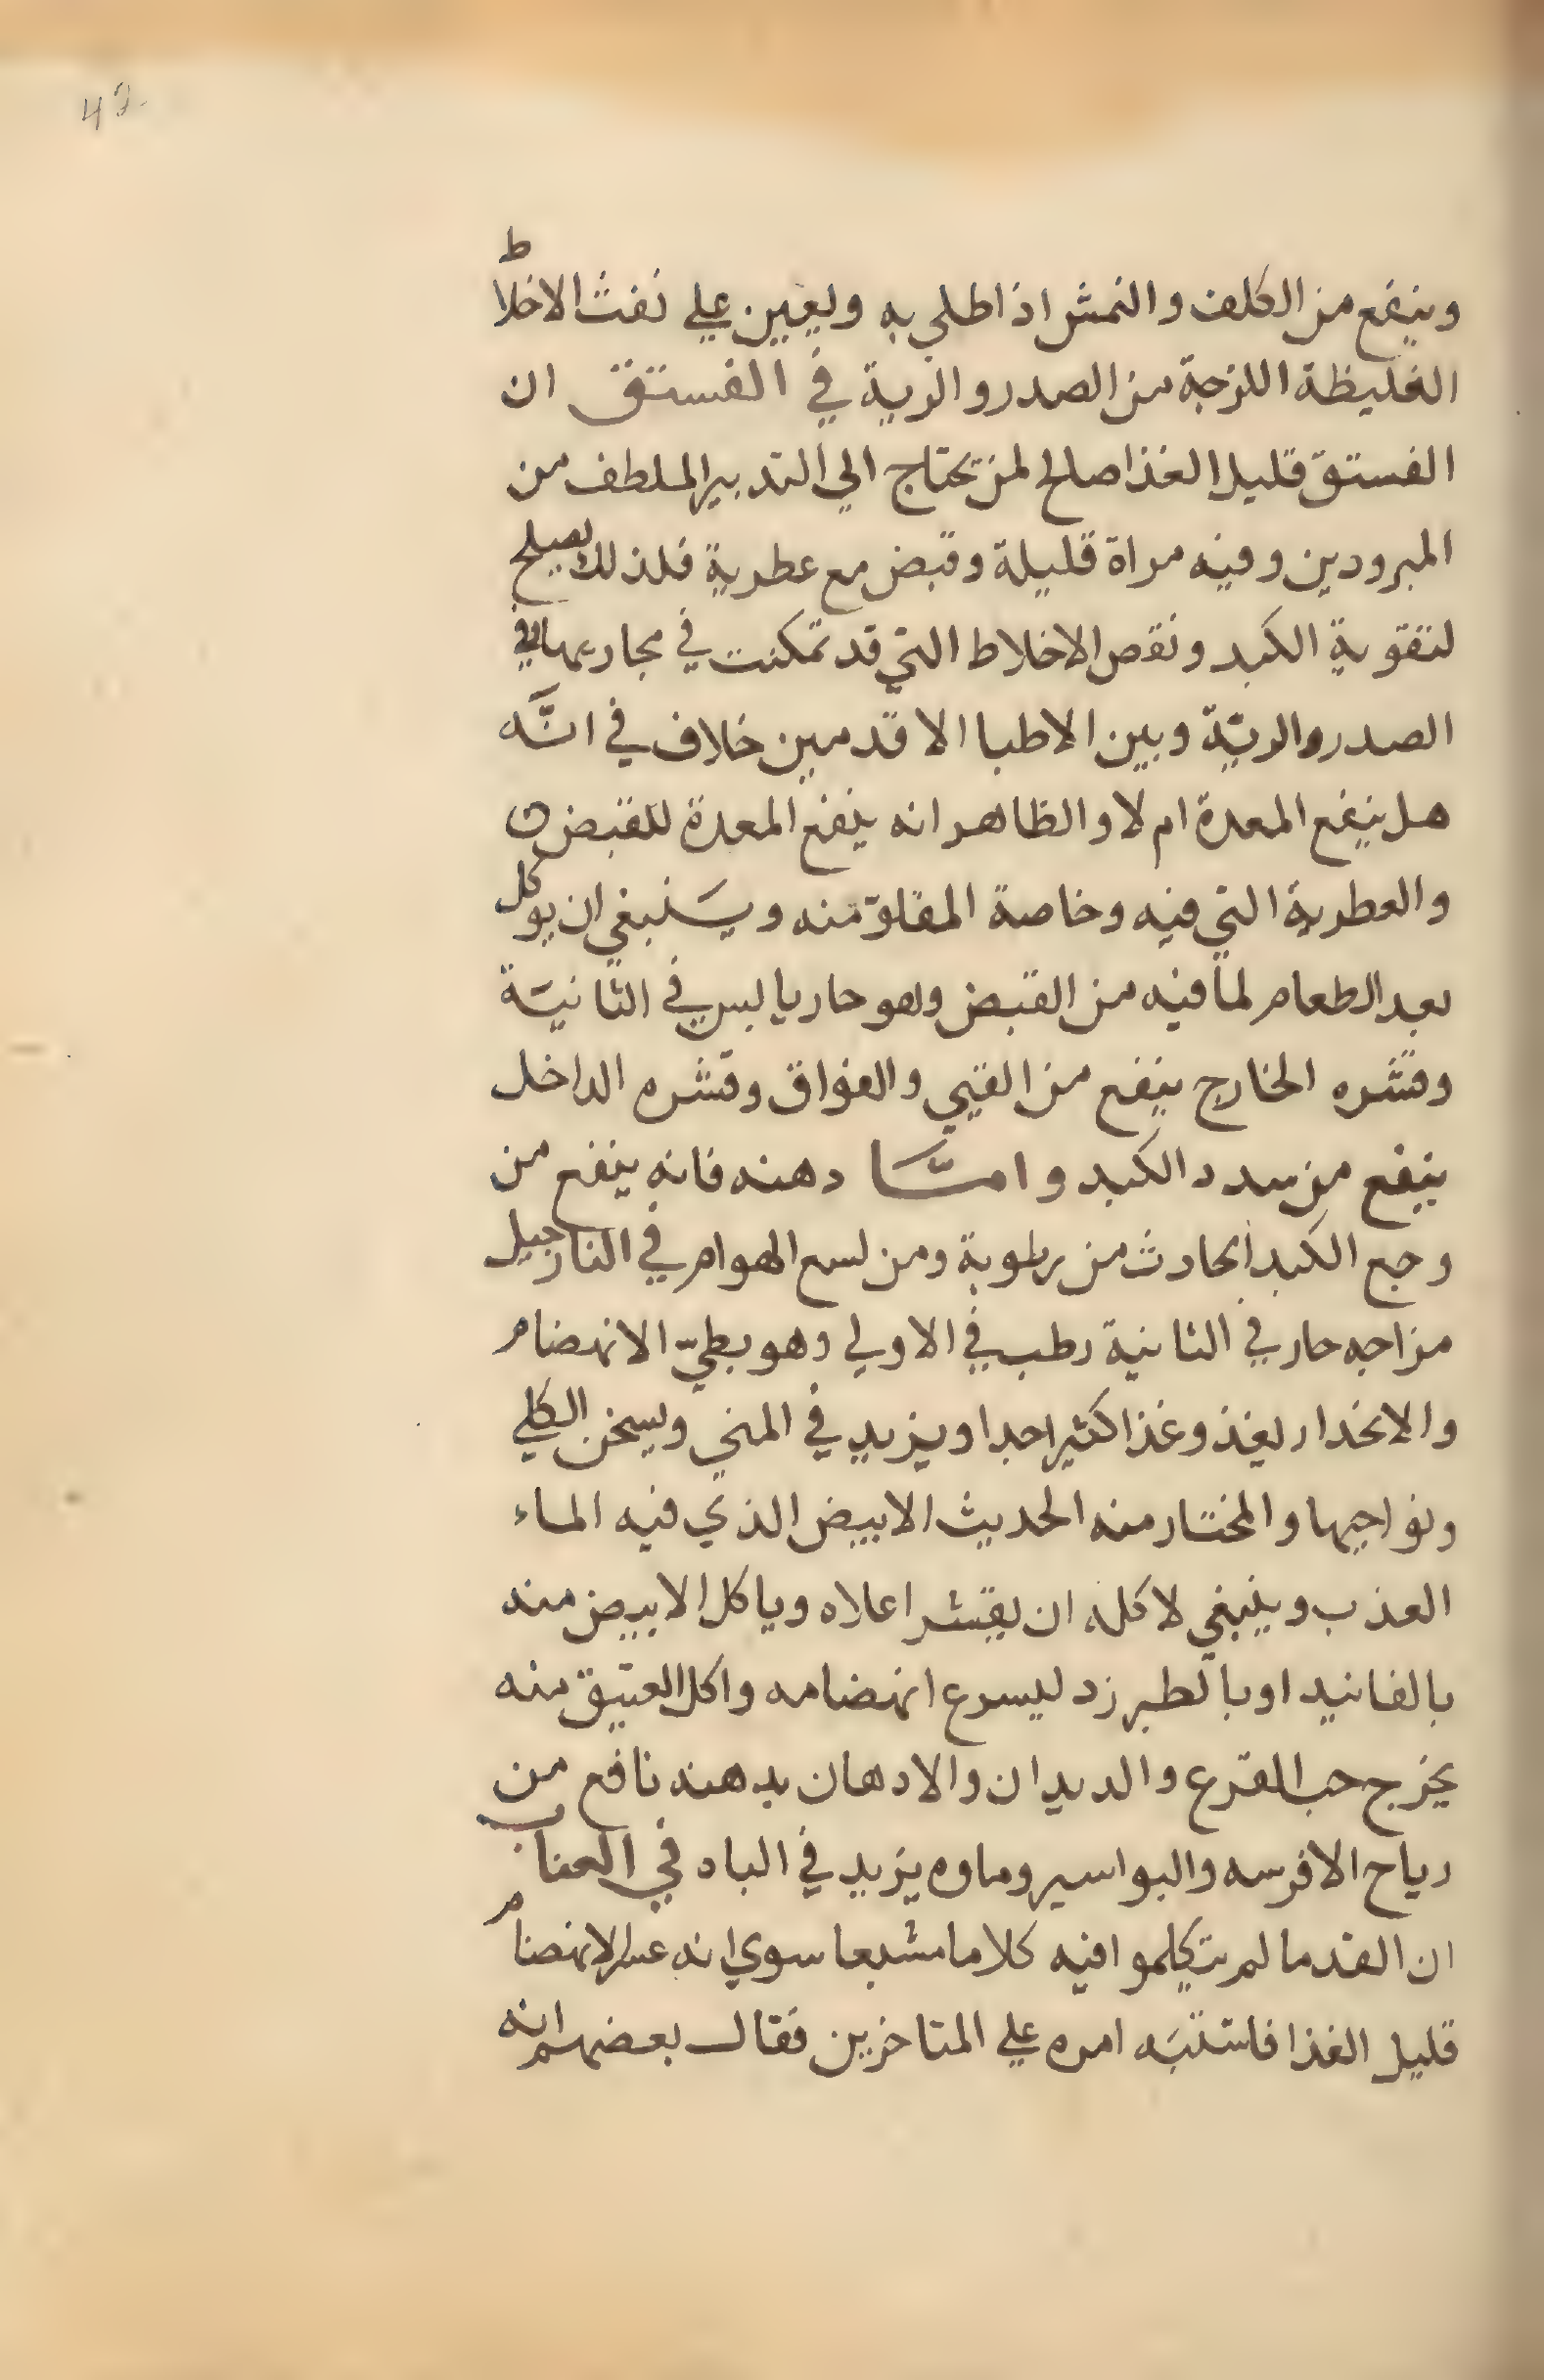 42
وينفع من الكلف والنمش اذا طلي به ويعين علي نفث الاخلاط
الغليظة اللزجة من الصدر والرية في الفستق ان
الفستق قليل الغذا صالح لمن يحتاج الي التدبير الملطف من
المبرودين وفيه مراة قليلة وقبض مع عطرية فلذلك يصلح
لتقوية الكبد ونقص الاخلاط التي قد تمكنت في مجاريها وفي
الصدر والريّة وبين الاطبا الاقدمين خلاف في انَّه
هل ينفع المعدة ام لا والظاهر انه ينفع المعدة للقبض
والعطرية التي فيه وخاصة المقلوّ منه وينبغي ان يوكل
بعد الطعام لما فيه من القبض وهو حار يابس في الثانيّة
وقشره الخارج ينفع من القيي والفواق وقشره الداخل
ينفع من سدد الكبد وامّا دهنه فانه ينفع من
وجع الكبد الحادث من رطوبة ومن لسع الهوام في النارجيل
مزاجه حار في الثانية رطب في الاولي وهو بطيّ الانهضام
والانحدار يغذو غذا كثيرا جدا ويزيد في المني ويسخن الكلي
ونواحيها والمختار منه الحديث الابيض الذي فيه الماء
العذب وينبغي لاكله ان يقشر اعلاه وياكل الابيض منه
بالفانيد او بالطبرزد ليسرع انهضامه واكل العتيق منه
يخرج حب القرع والديدان والادهان بدهنه نافع من
رياح الافرسه والبواسير وماوه يزيد في الباه في العناب
ان القدما لم يتكلموا فيه كلاما مشبعا سوي انه عسر الانهضام
قليل الغذا فاشتبَه امره علي المتاخرين فقال بعضهم انه